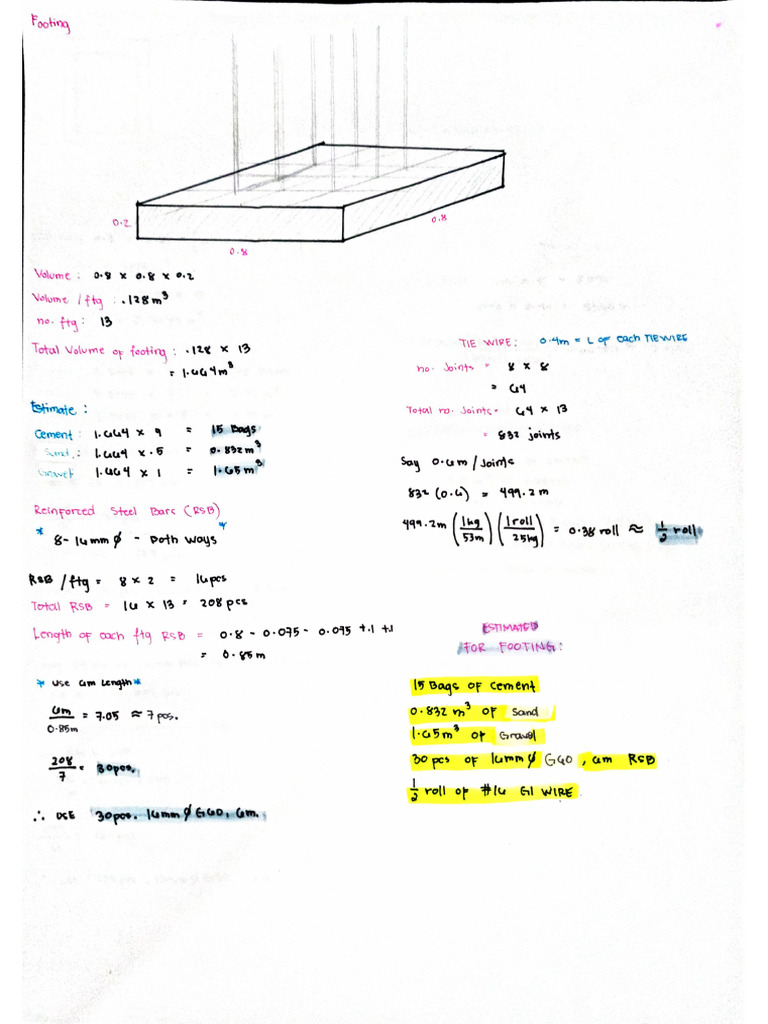 Footing
0.2
0.8
0.8
Volume : 0.8 x 0.8 x 0.2
Volume / ftg : .128 m³
no. ftg : 13
Total Volume of footing : .128 x 13
= 1.664 m³
Estimate :
Cement : 1.664 x 9 = 15 Bags
Sand : 1.664 x .5 = 0.832 m³
Gravel : 1.664 x 1 = 1.65 m³
Reinforced Steel Bars (RSB)
* 8 - 16mm ø - Both ways *
RSB / ftg = 8 x 2 = 16 pcs
Total RSB = 16 x 13 = 208 pcs
Length of each ftg RSB = 0.8 - 0.075 - 0.075 + .1 + .1
= 0.85 m
* Use 6m Length *
6m / 0.85m = 7.05 ≈ 7 pcs.
208 / 7 = 30 pcs.
∴ USE 30 pcs. 16mm ø G60, 6m.
TIE WIRE : 0.4m = L of each TIE WIRE
no. Joints = 8 x 8
= 64
Total no. Joints = 64 x 13
= 832 joints
Say 0.6m / Joints
832 (0.6) = 499.2 m
499.2 m (1 kg / 53m) (1 roll / 25kg) = 0.38 roll ≈ 1/2 roll
ESTIMATED
FOR FOOTING :
15 Bags of Cement
0.832 m³ of Sand
1.65 m³ of Gravel
30 pcs of 16mm ø G60, 6m RSB
1/2 roll of #16 GI WIRE